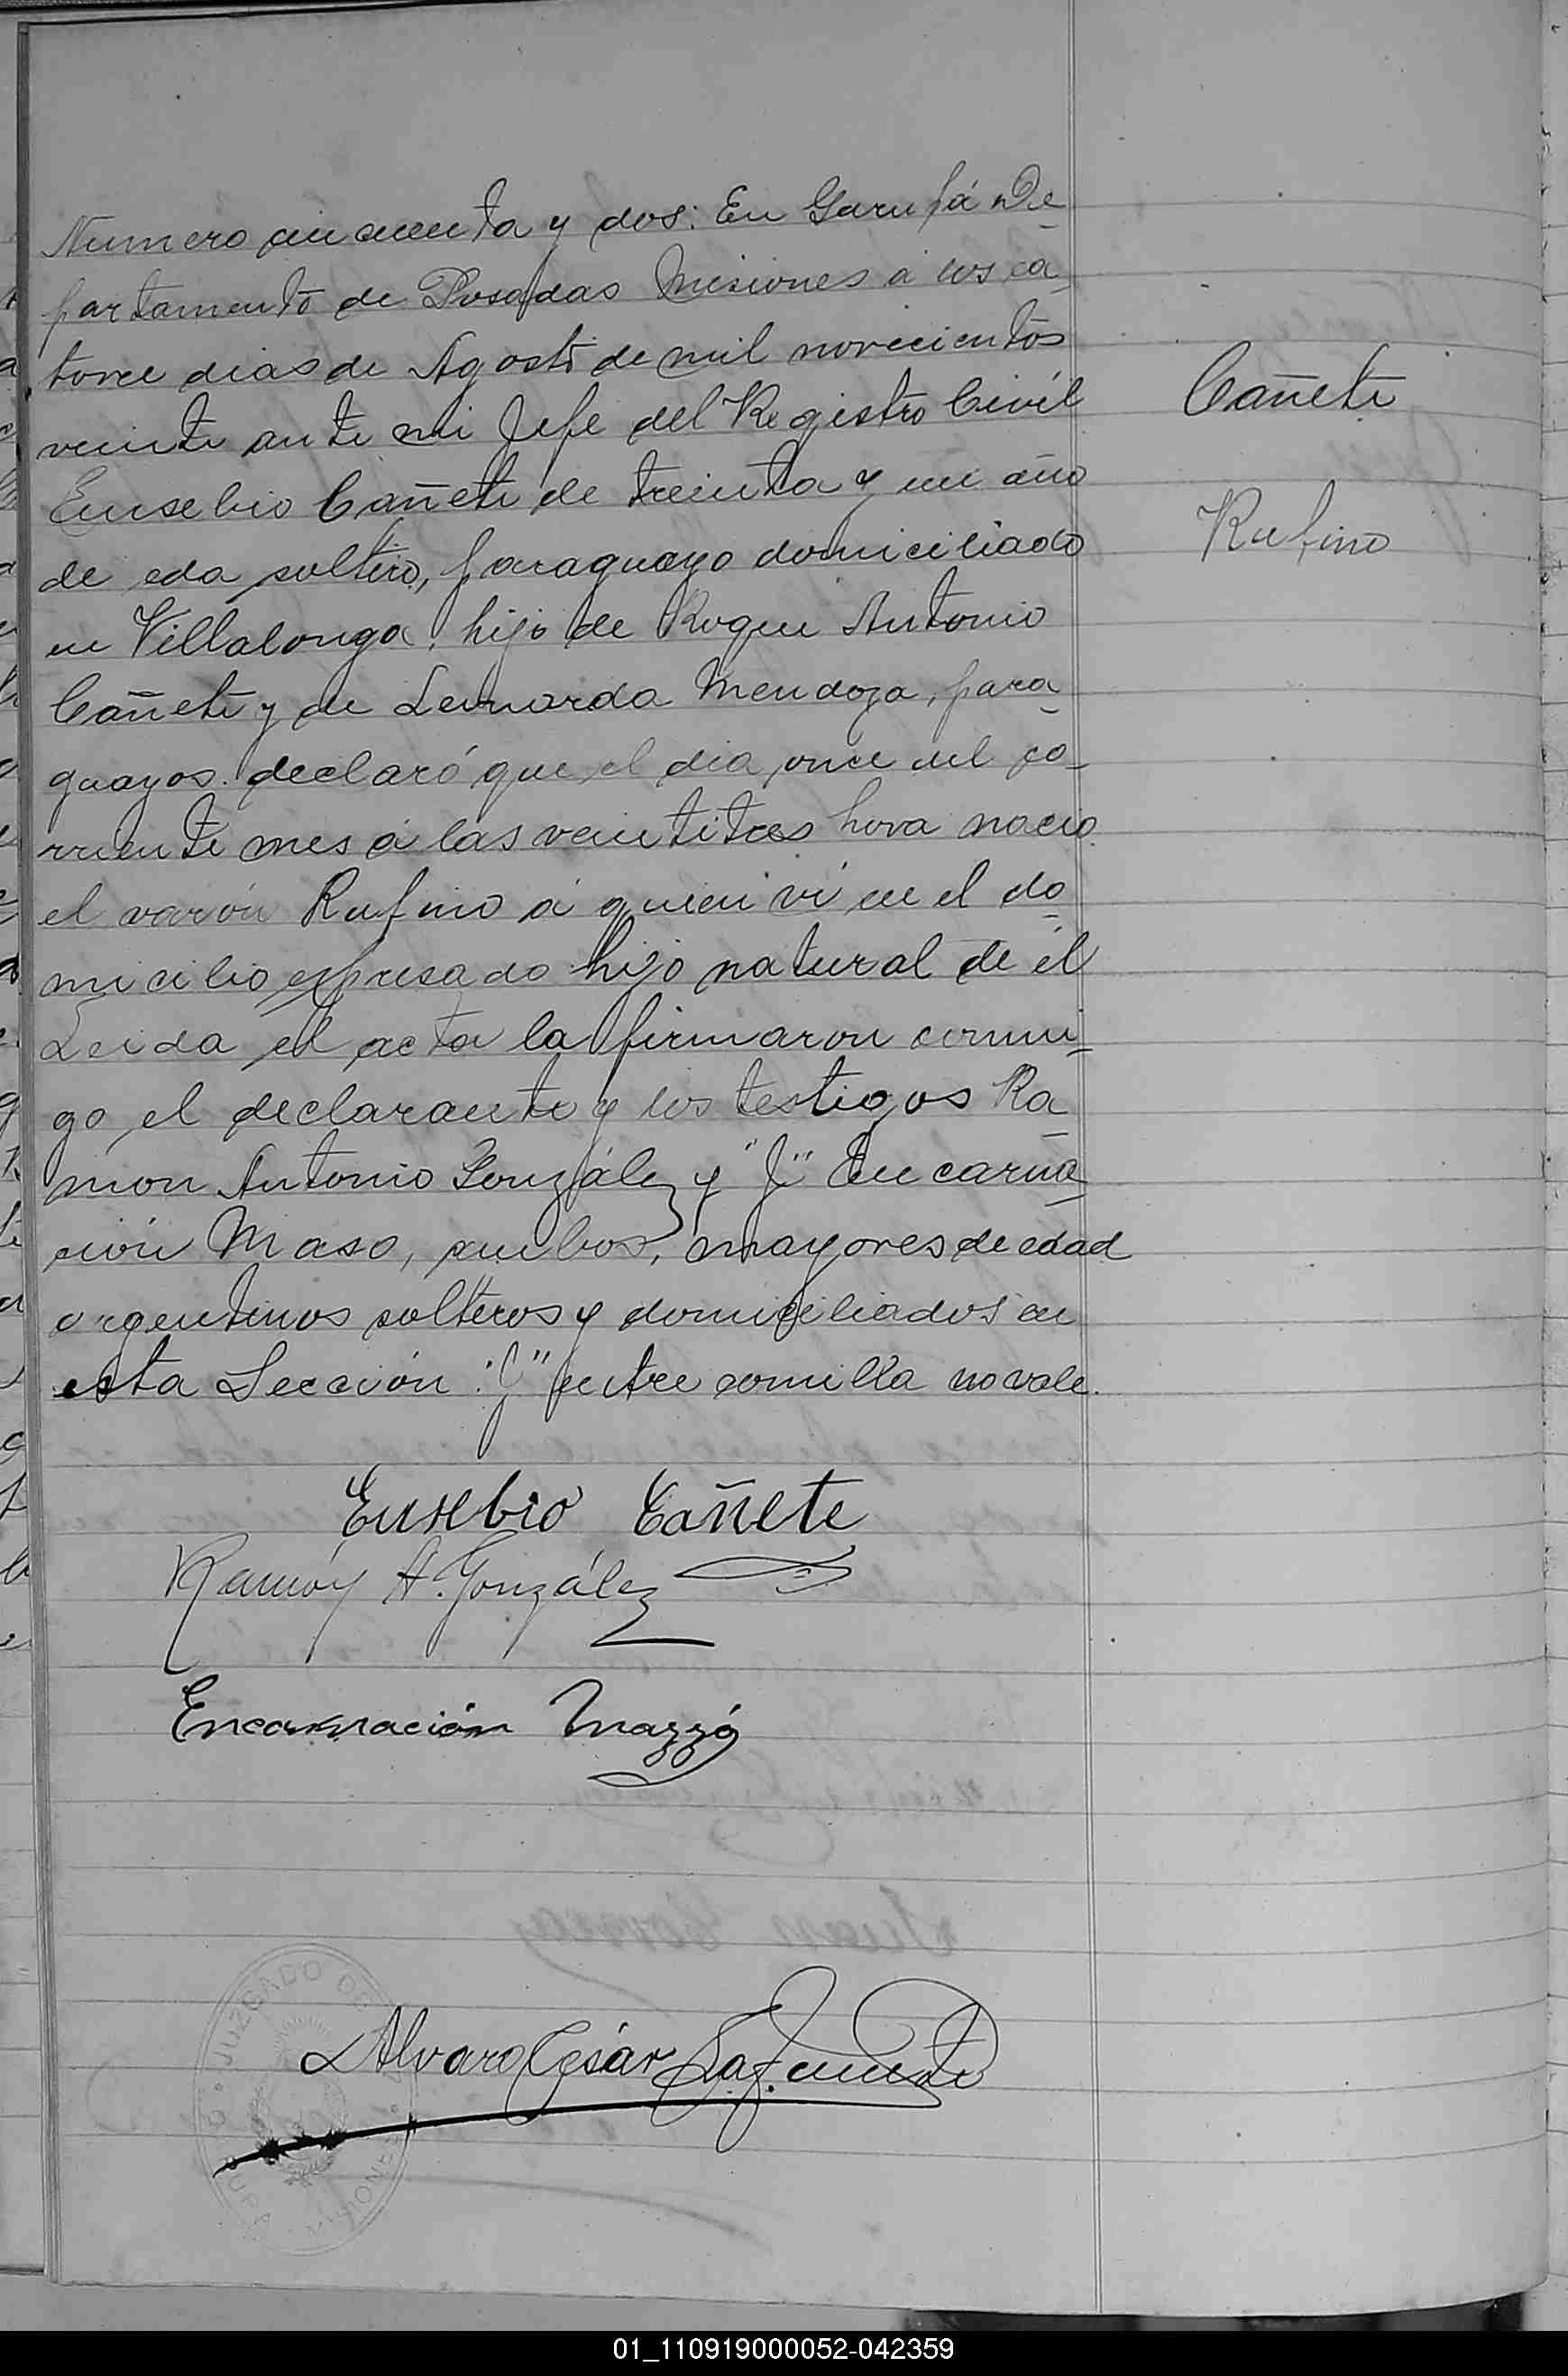 Numero cincuenta y dos: En Garupá De-
partamento de Posadas Misiones á los ca-
torce dias de Agosto de mil novecientos
veinte ante mi Jefe del Registro Civil
Eusebio Cañete de treinta y un año
de eda soltero, paraguayo domiciliado
en Villalonga, hijo de Roque Antonio
Cañete y de Leonarda Mendoza, para-
guayos. declaró que el dia once del co-
rriente mes á las veintitres hora nació
el varón Rufino á quien vi en el do-
micilio expresado hijo natural de él
Leida el acta la firmaron conmi-
go el declarante y los testigos Ra-
món Antonio González y "J" Encarna-
ción Maso, ambos, mayores de edad
argentinos solteros y domiciliados en
esta Sección "J" entre comilla no vale.
Cañete
Rufino
Eusebio Cañete
Ramón A. González
Encarnación Mazzó
Alvaro César Lafuente
JUZGADO DE
MISIONES
01_110919000052-042359